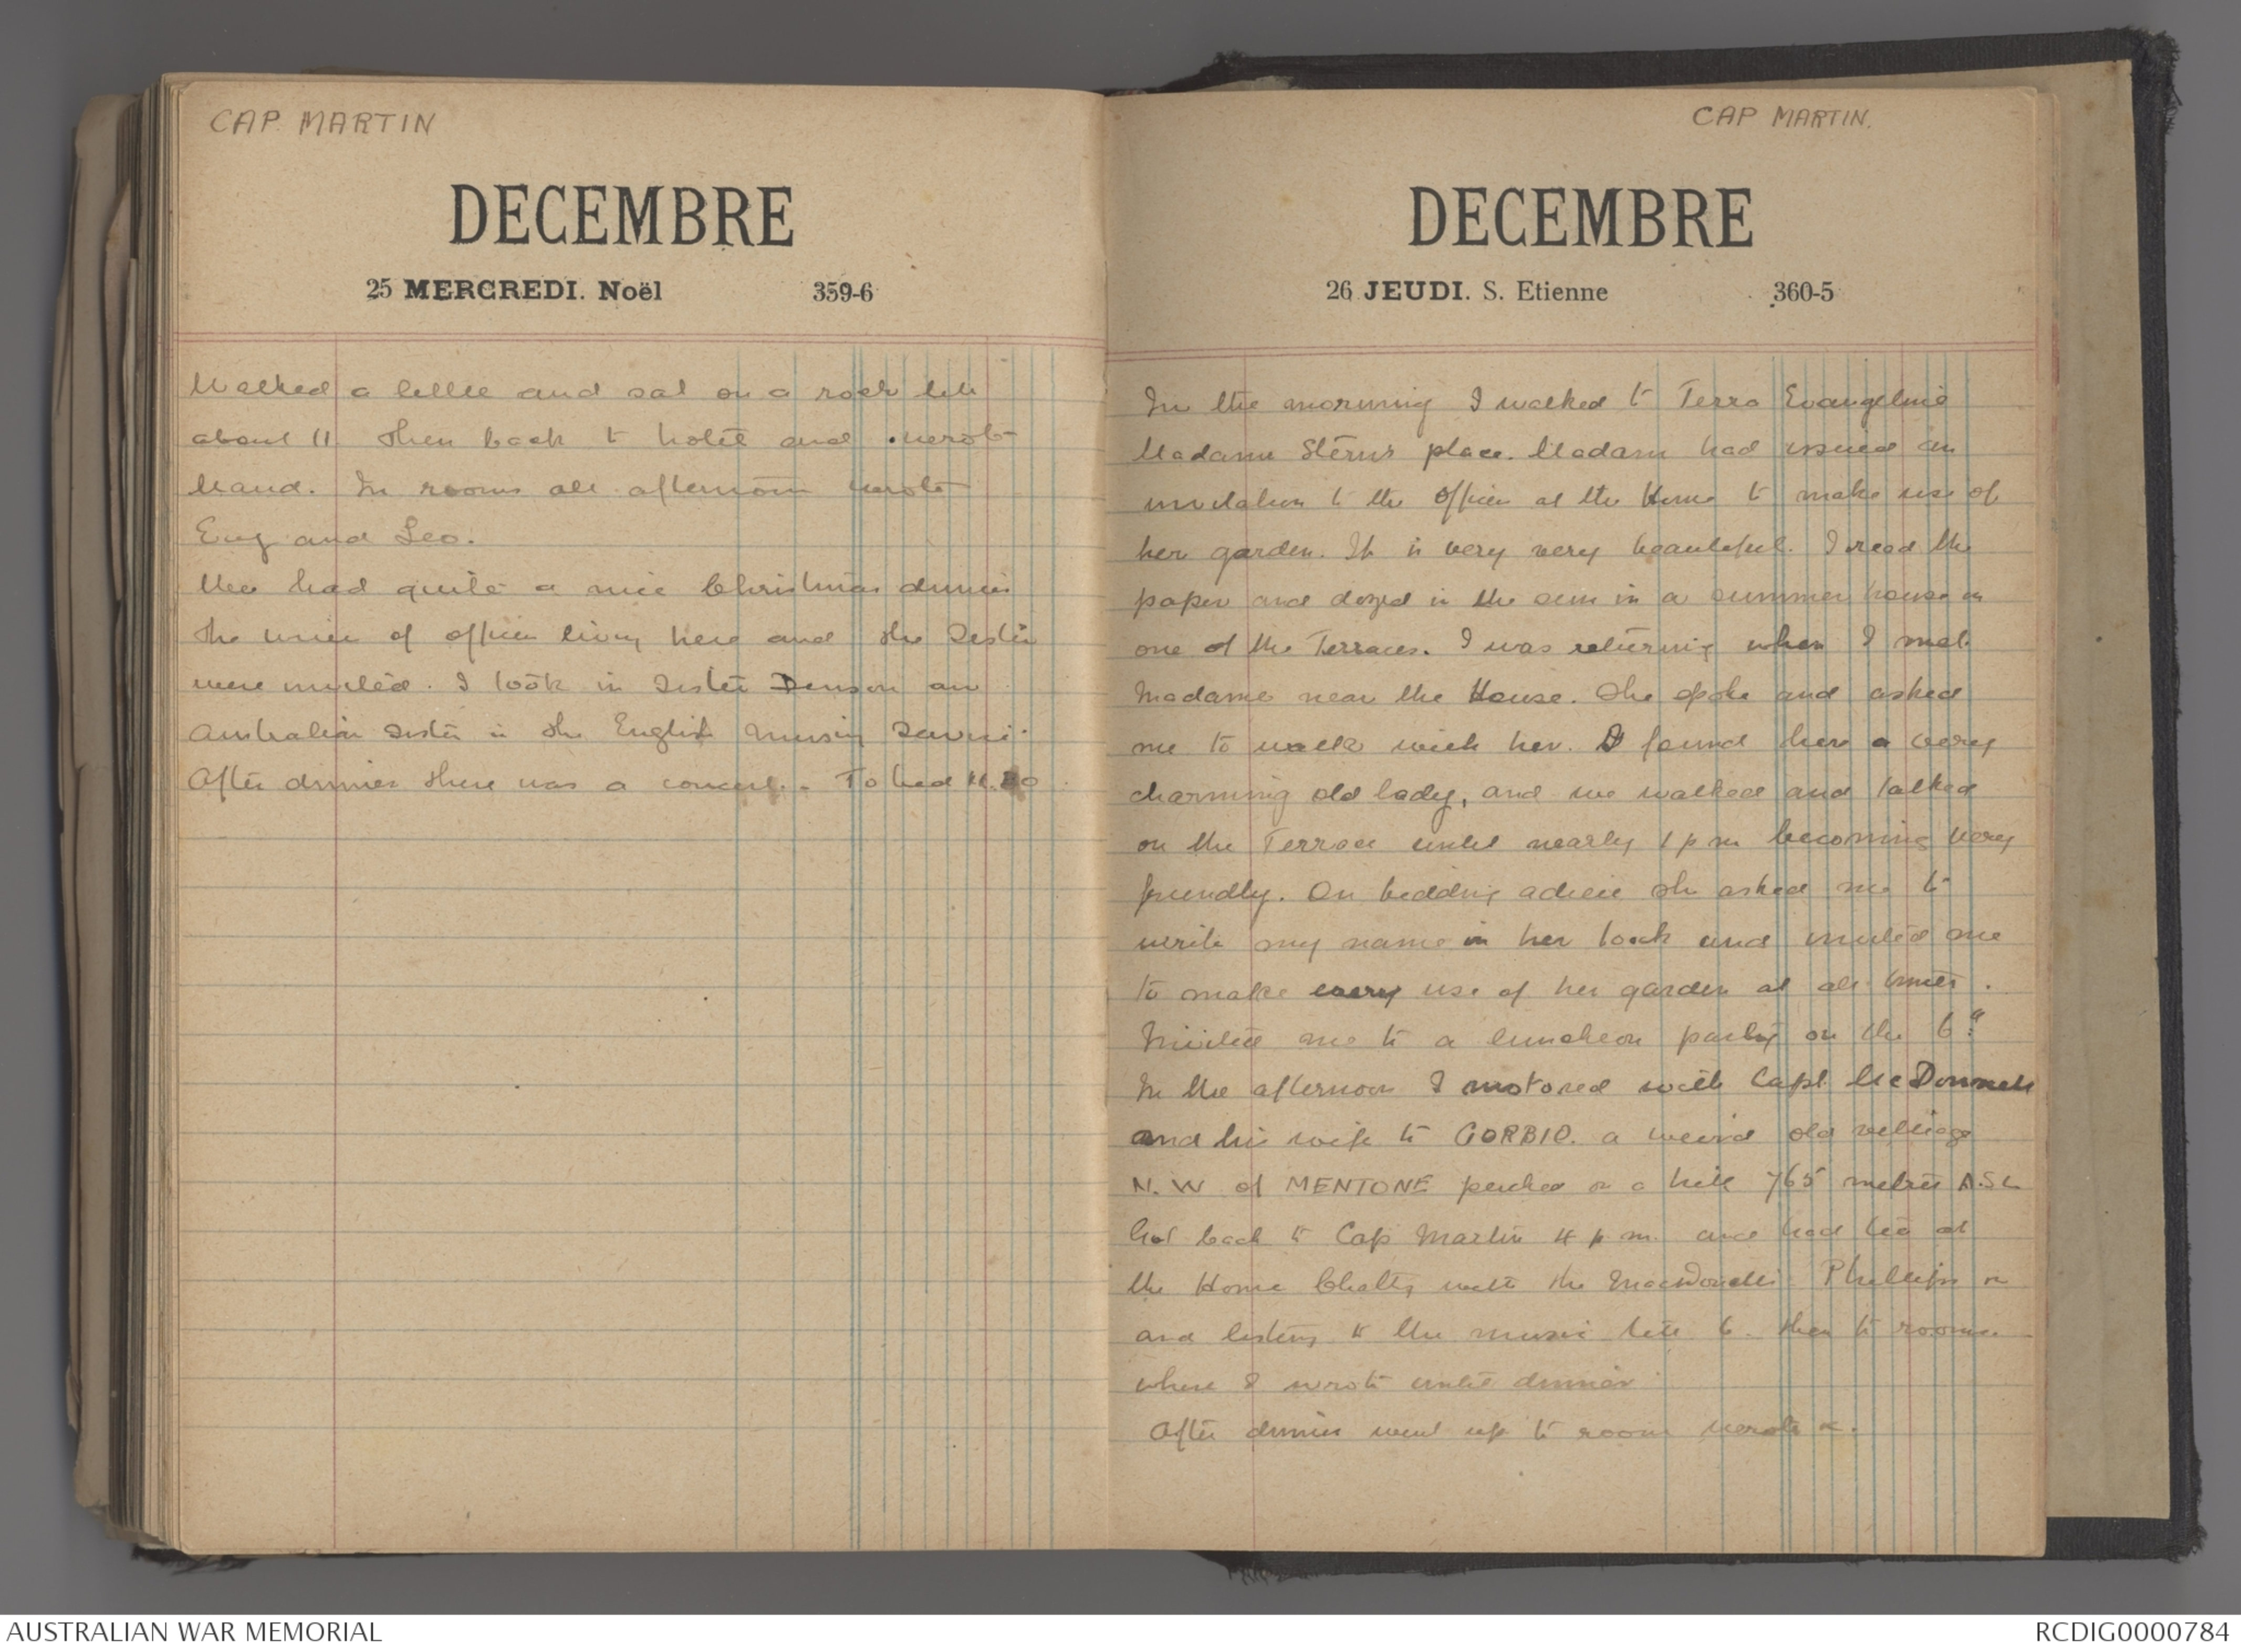 CAP MARTIN
DECEMBRE
25 MERCREDI. Noël 359-6
Walked a little and sat on a rock till
about 11. Then back to hotel and wrote
Maud. In rooms all afternoon wrote
and Leo.
We had quite a nice Christmas dinner
The of officers living here and the Sisters
were invited. I took in Sister Denson an
Australian Sister in the English Nursing Service.
After dinner there was a concert. To bed
CAP MARTIN.
DECEMBRE
26 JEUDI. S. Etienne 360-5
In the morning I walked to Terra
Madame Sterns place. Madam had issued an
invitation to the Officers at the Home to make use of
her garden. It is very very beautiful. I read the
paper and dozed in the sun in a summer house on
one of the Terraces. I was returning when I met
Madame near the House. She spoke and asked
me to walk with her. I found her a very
charming old lady, and we walked and talked
on the Terrace until nearly 1 pm becoming very
friendly. On bidding adieu she asked me to
write my name in her book and invited me
to make every use of her garden at all times.
Invited me to a luncheon party on the 6th
In the afternoon I motored with Capt McDonnell
and his wife to GORBIO. a weird old village
N.W of MENTONE perched on a hill 765 metres A.S.L
Got back to Cap Martin 4 p.m. and had tea at
the Home Chatting with the MacDonells Phillips
and listening to the music till 6. then to rooms.
where I wrote until dinner
After dinner went up to room wrote &.
AUSTRALIAN WAR MEMORIAL
RCDIG0000784